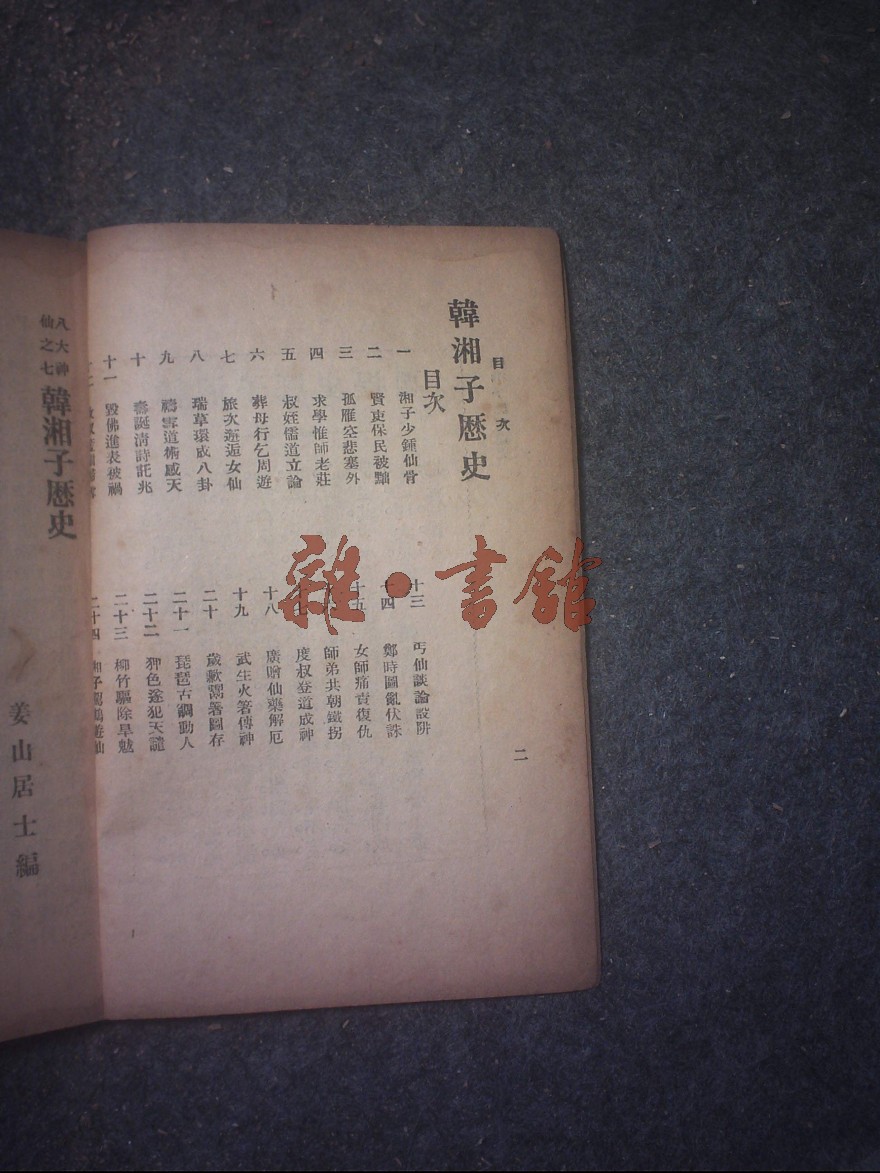 目次
韓湘子歷史
目次
一 湘子少鍾仙骨
二 賢吏保民被黜
三 孤雁空悲塞外
四 求學惟師老莊
五 叔姪儒道立論
六 葬母行乞周遊
七 旅次邂逅女仙
八 瑞草環成八卦
九 禱雪道術感天
十 壽誕清詩託兆
十一 毀佛進表被禍
十三 丐仙談論設阱
十四 鄭時圖亂伏誅
十五 女師痛責復仇
師弟共朝鐵拐
度叔登道成神
十八 廣贈仙藥解厄
十九 武生火箸傳神
二十 歲歉鬻箸圖存
二十一 琵琶古調動人
二十二 狎色遂犯天譴
二十三 柳竹驅除旱魃
二十四
二
八大神仙之七
韓湘子歷史
姜山居士編
雜·書館